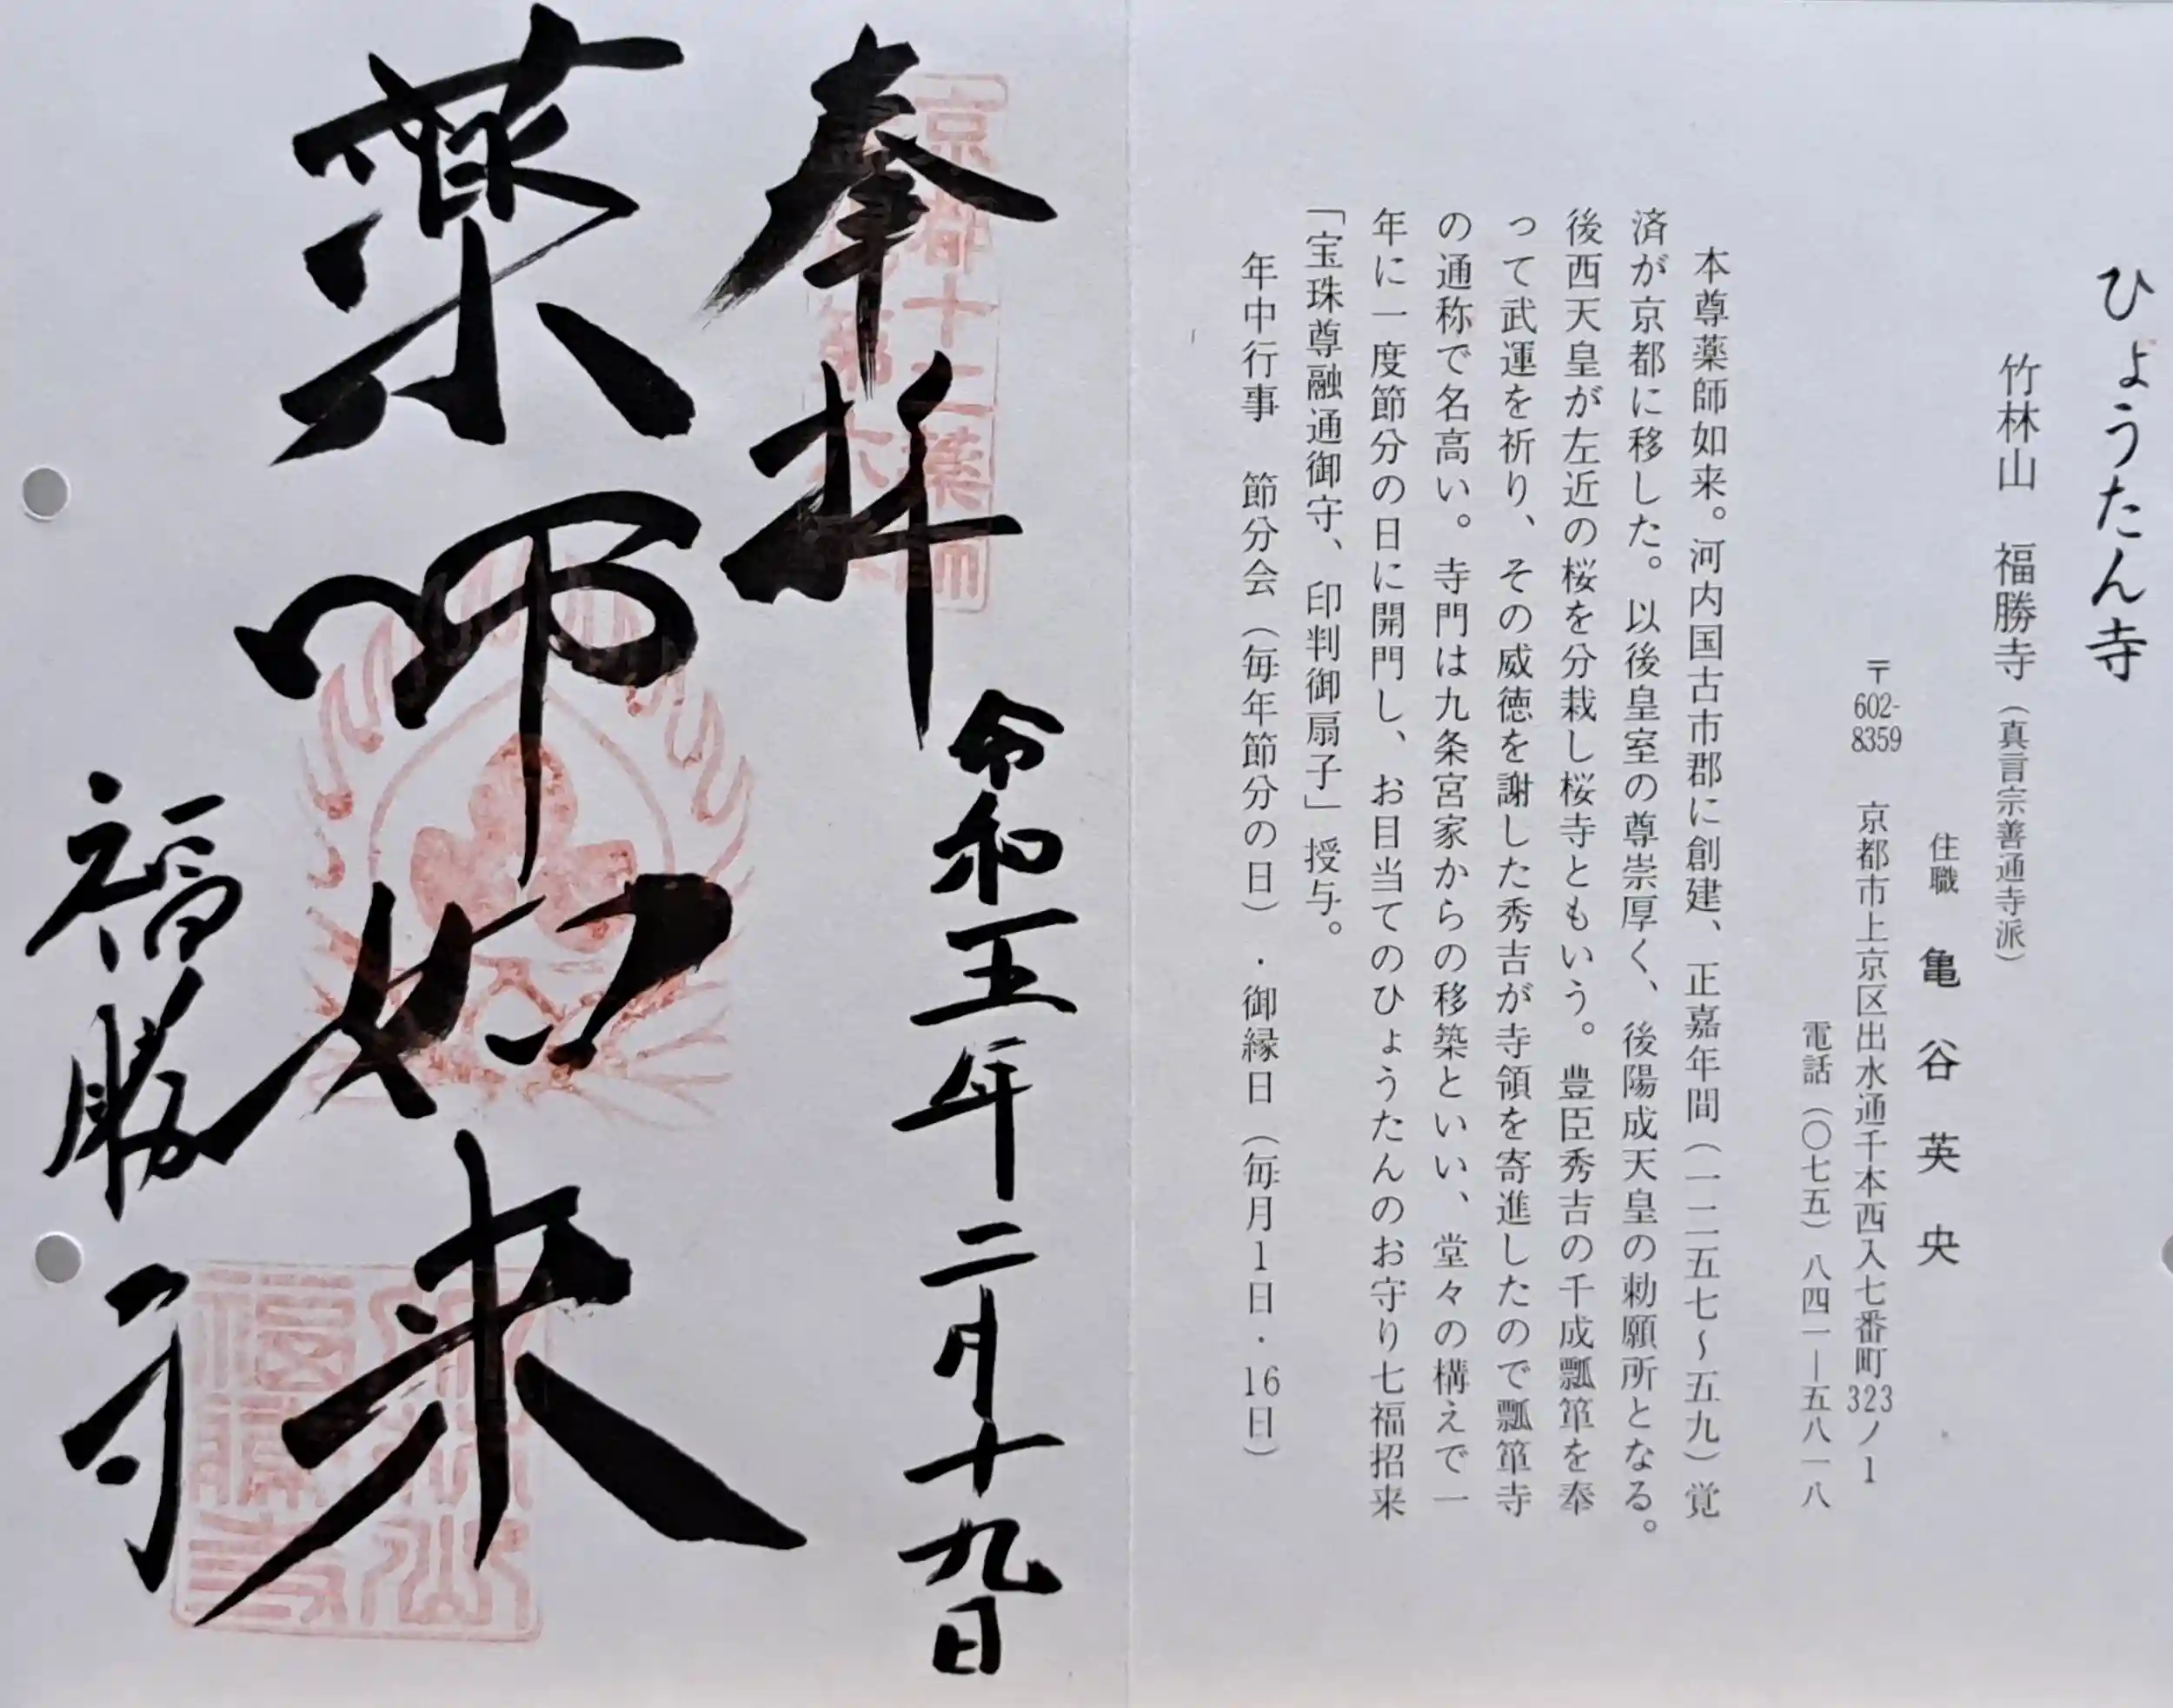 ひょうたん寺
竹林山　福勝寺（真言宗善通寺派）
住職　亀谷英央
〒602-8359　京都市上京区出水通千本西入七番町323ノ1
電話（〇七五）八四一―五八一八
本尊薬師如来。河内国古市郡に創建、正嘉年間（一二五七～五九）覚
済が京都に移した。以後皇室の尊崇厚く、後陽成天皇の勅願所となる。
後西天皇が左近の桜を分栽し桜寺ともいう。豊臣秀吉の千成瓢箪を奉
って武運を祈り、その威徳を謝した秀吉が寺領を寄進したので瓢箪寺
の通称で名高い。寺門は九条宮家からの移築といい、堂々の構えで一
年に一度節分の日に開門し、お目当てのひょうたんのお守り七福招来
「宝珠尊融通御守、印判御扇子」授与。
年中行事　節分会（毎年節分の日）・御縁日（毎月1日・16日）
京都十二薬師
奉拝
令和五年二月十九日
薬師如来
福勝寺
竹林山
福勝寺